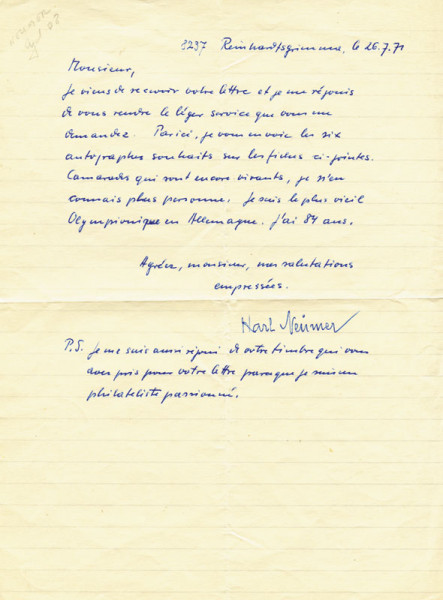 8237 Reinhardtsgrimma, le 26.7.71
Monsieur,
Je viens de recevoir votre lettre et je me réjouis
de vous rendre le léger service que vous me
demandez. Par ici, je vous envoie les six
autographes souhaits sur les fiches ci-jointes.
Camarades qui sont encore vivants, je n'en
connais plus personne. Je suis le plus vieil
Olympionique en Allemagne. J'ai 84 ans.
Agréez, monsieur, mes salutations
empressées.
Karl Neumer
P.S. Je me suis aussi réjoui de votre timbre qui vous
avez pris pour votre lettre parceque je suis un
philateliste passionné.